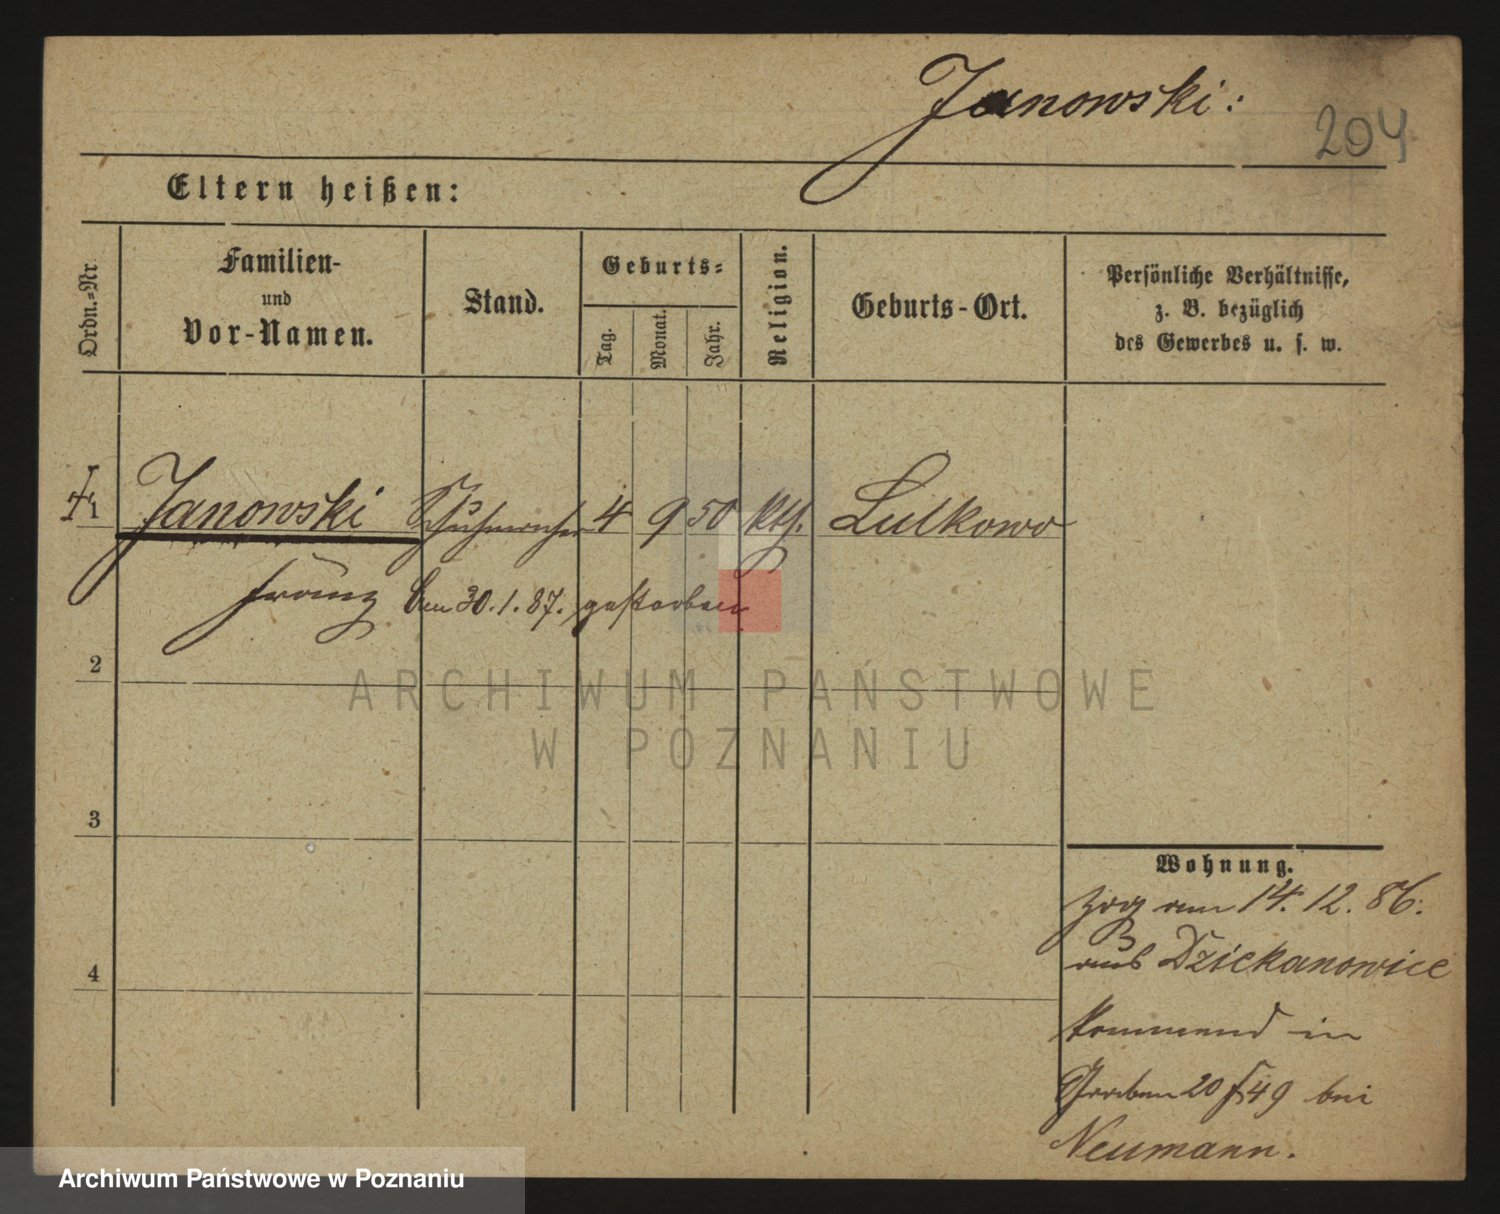 Janowski:
204
Eltern heißen:
Ordn.=Nr
Familien-
und
Vor-Namen.
Stand.
Geburts=
Tag.
Monat.
Jahr.
Religion.
Geburts-Ort.
Persönliche Verhältnisse,
z. B. bezüglich
des Gewerbes u. s. w.
1 Janowski Schuhmacher 4 9 50 kth. Lulkowo
Franz den 30.1.87. gestorben
2
3
4
Wohnung.
zog am 14. 12. 86.
aus Dziekanowice
kommend in
Graben 20 549 bei
Neumann.
ARCHIWUM PAŃSTWOWE
W POZNANIU
Archiwum Państwowe w Poznaniu